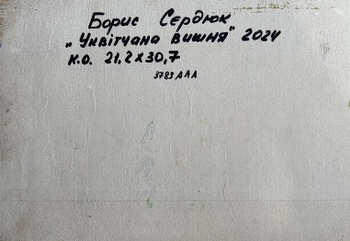 Борис Сєрдюк
"Уквітчана вишня" 2024
к.о. 21,2х30,7
3783 ААА